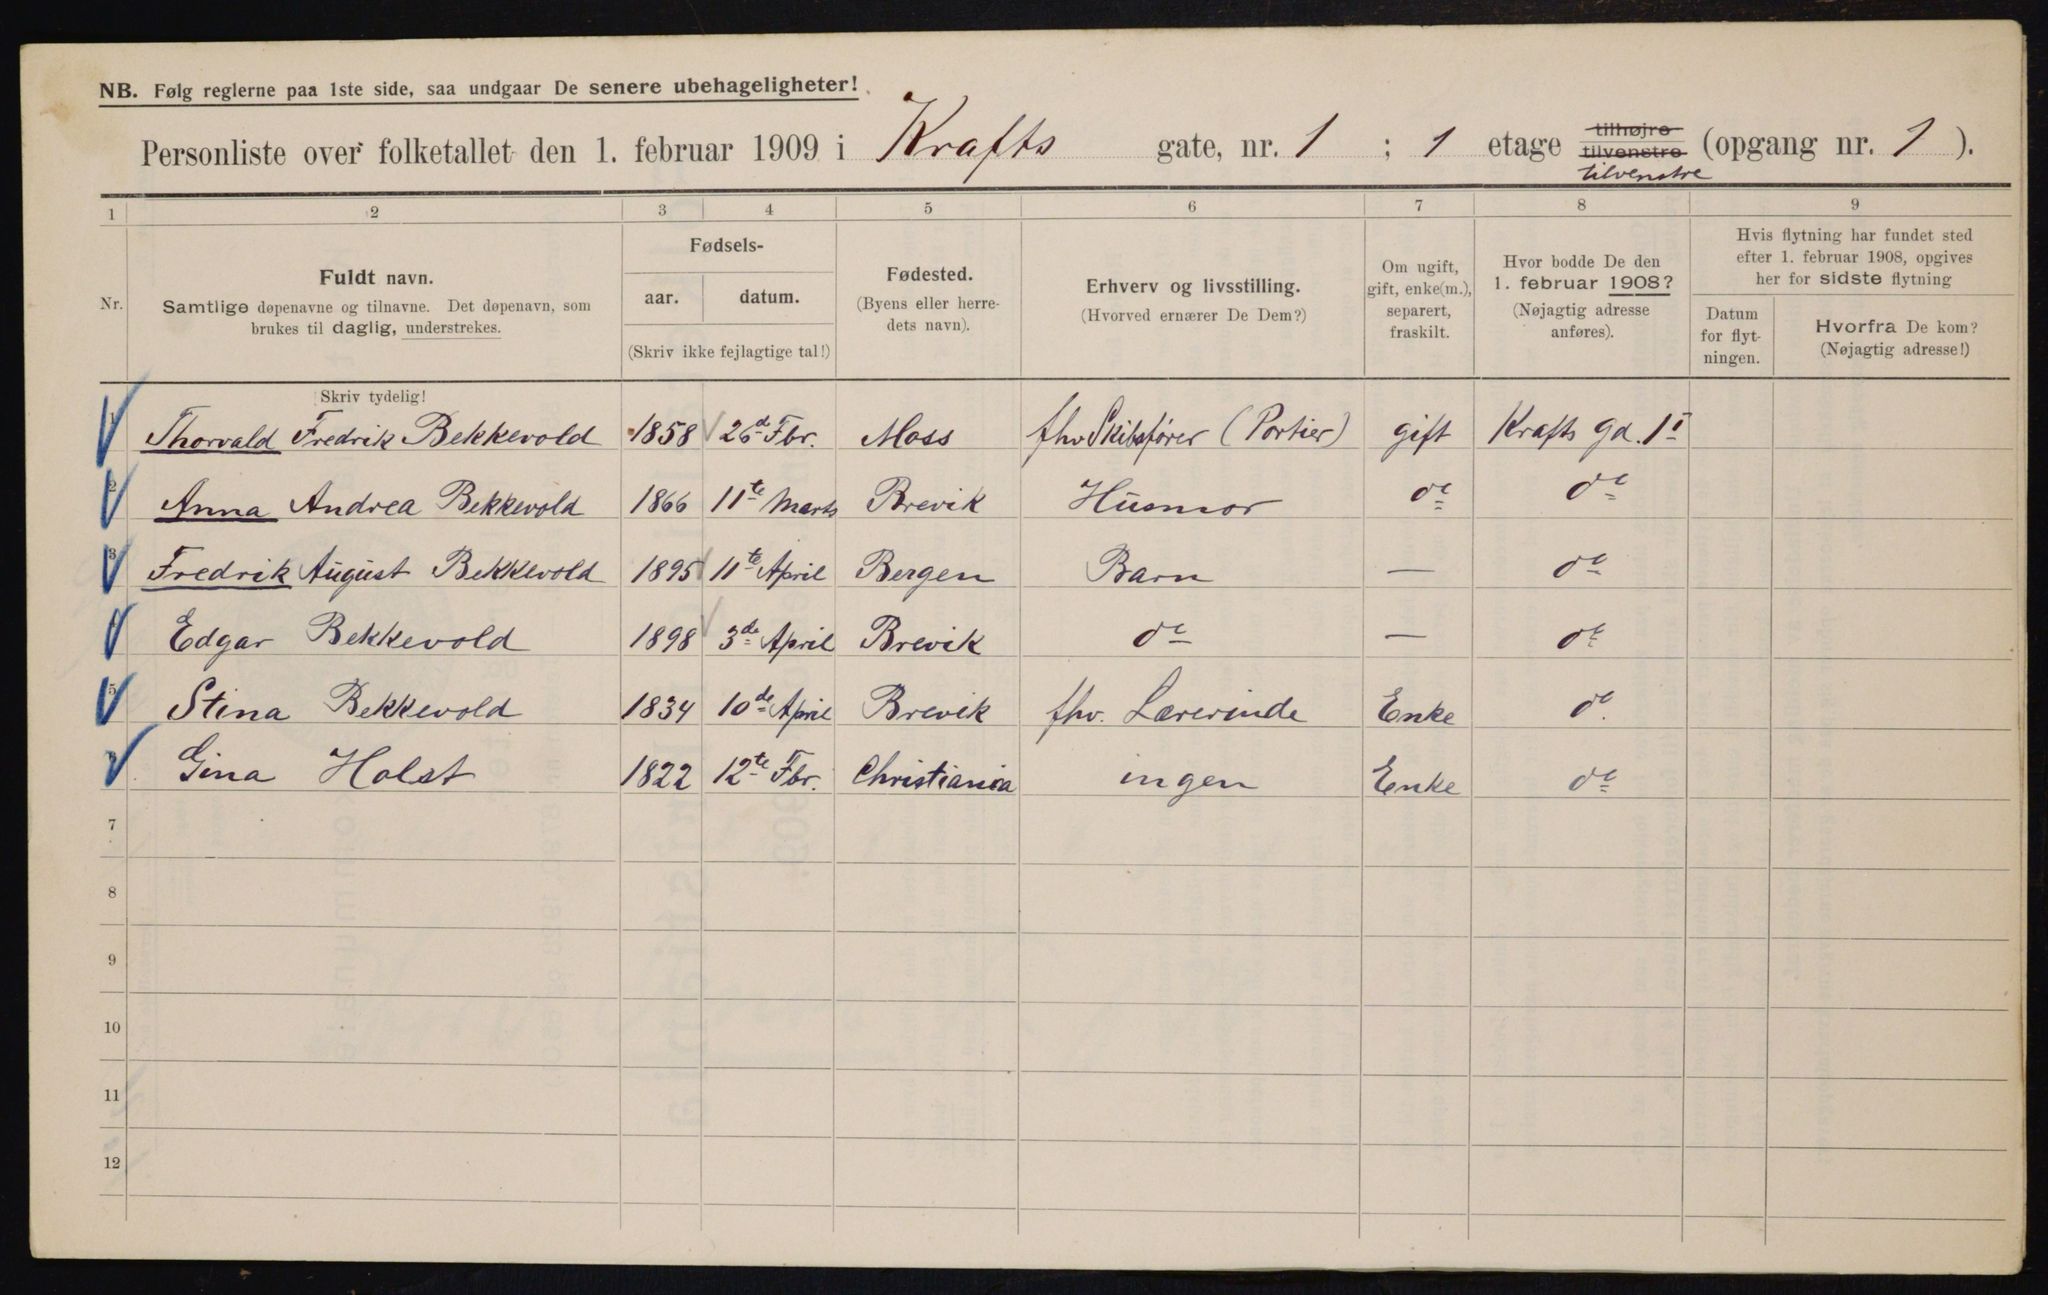 NB. Følg reglerne paa 1ste side, saa undgaar De senere ubehageligheter!
Personliste over folketallet den 1. februar 1909 i Krafts gate, nr. 1 ; 1 etage tilhøjre tilvenstre (opgang nr. 1 ).
tilvenstre
1 2 3 4 5 6 7 8 9
Nr.
Fuldt navn.
Samtlige døpenavne og tilnavne. Det døpenavn, som
brukes til daglig, understrekes.
Fødsels-
aar. datum.
(Skriv ikke fejlagtige tal!)
Fødested.
(Byens eller herre-
dets navn).
Erhverv og livsstilling.
(Hvorved ernærer De Dem?)
Om ugift,
gift, enke(m.),
separert,
fraskilt.
Hvor bodde De den
1. februar 1908?
(Nøjagtig adresse
anføres).
Hvis flytning har fundet sted
efter 1. februar 1908, opgives
her for sidste flytning
Datum
for flyt-
ningen.
Hvorfra De kom?
(Nøjagtig adresse!)
Skriv tydelig!
1 Thorvald Fredrik Bekkevold 1858 26d Fbr. Moss fhv Skibsfører (Portier) gift Krafts gd. 1 I
2 Anna Andrea Bekkevold 1866 11te Marts Brevik Husmor do do
3 Fredrik August Bekkevold 1895 11te April Bergen Barn — do
4 Edgar Bekkevold 1898 3de April Brevik do — do
5 Stina Bekkevold 1834 10de April Brevik fhv. Lærerinde Enke do
Gina Holst 1822 12te Fbr. Christiania ingen Enke do
7
8
9
10
11
12